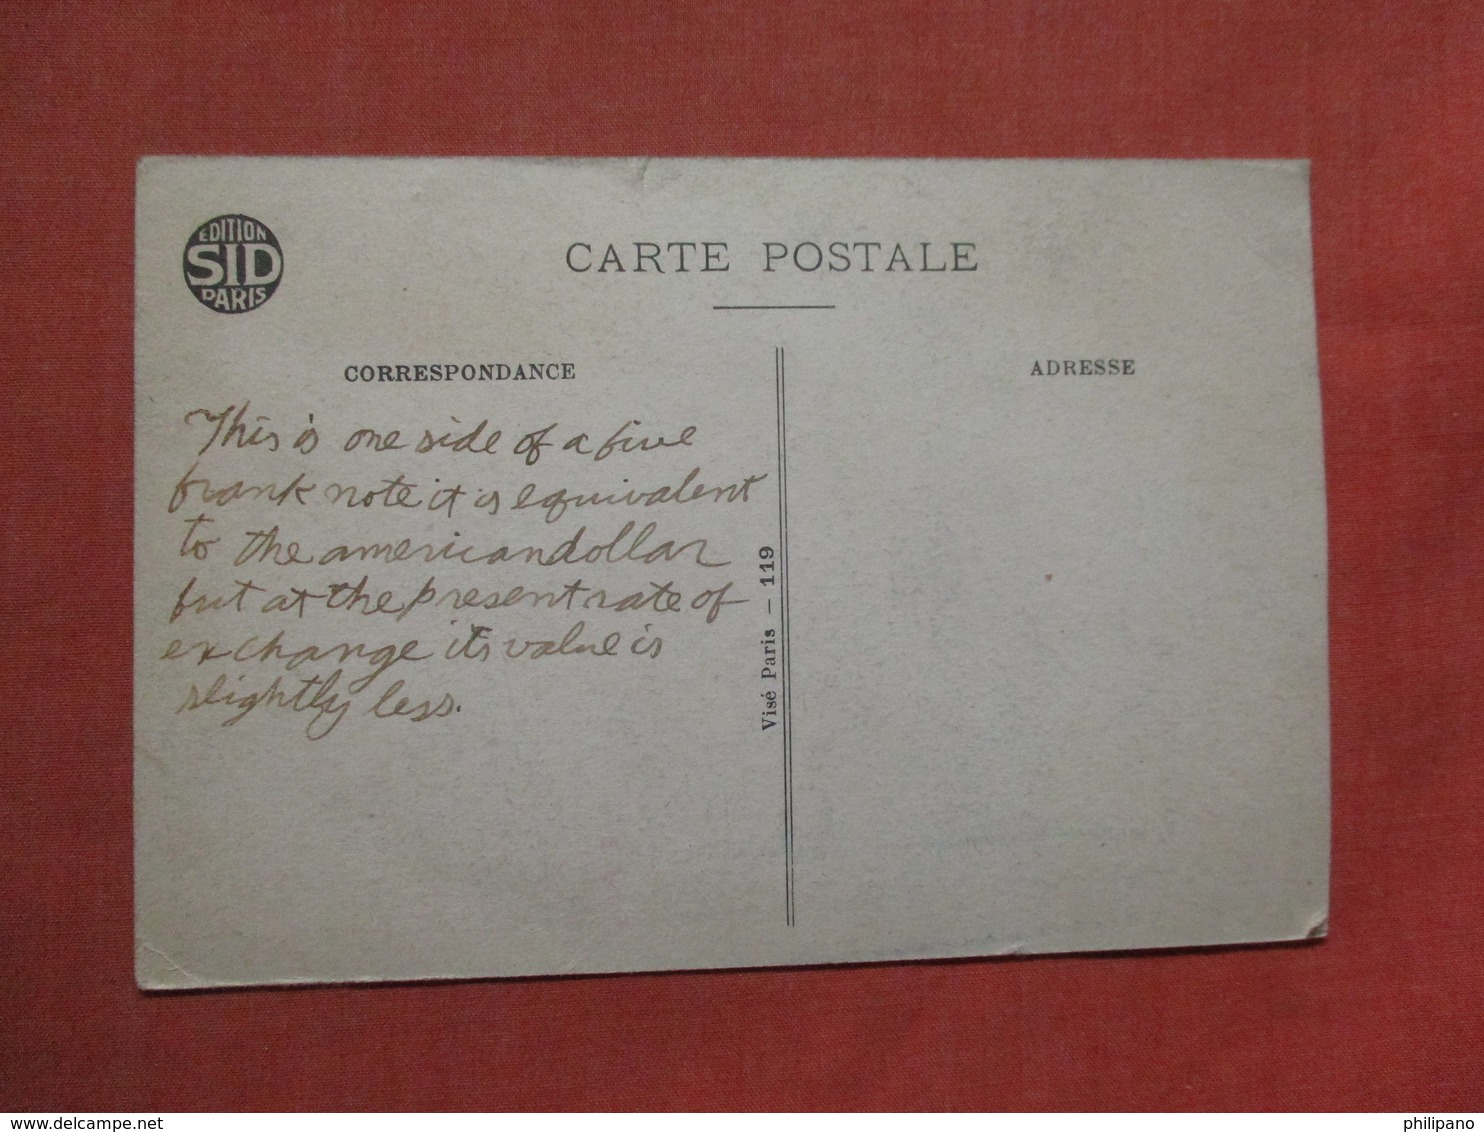 EDITION
SID
PARIS
CARTE POSTALE
CORRESPONDANCE
ADRESSE
This is one side of a five
frank note it is equivalent
to the american dollar
but at the present rate of
exchange its value is
slightly less.
Visé Paris - 119
www.delcampe.net
philipano